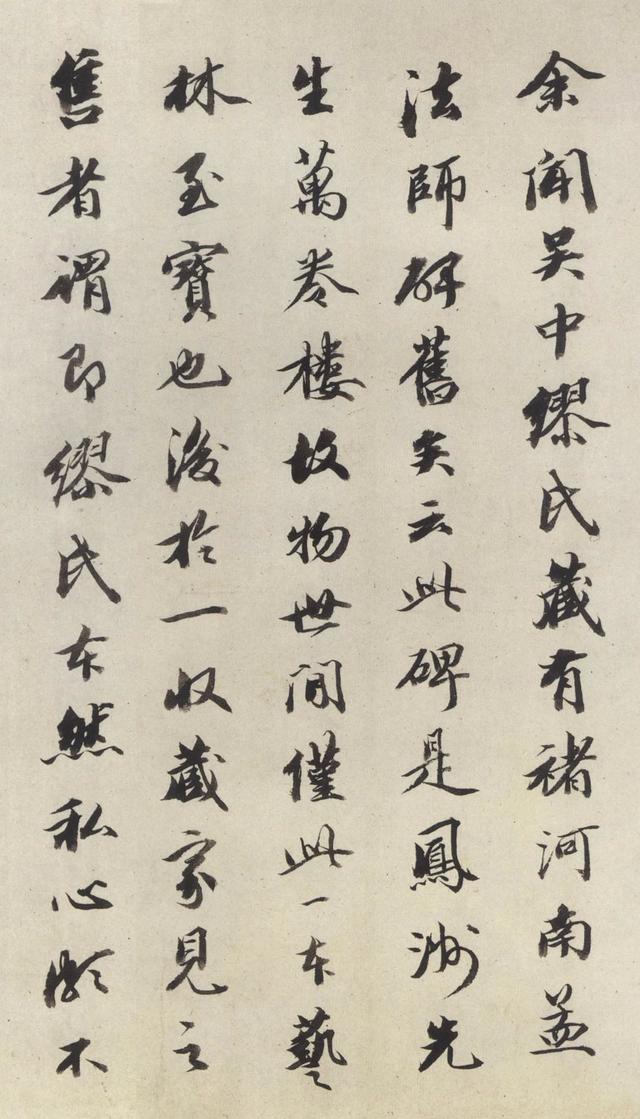 余聞吳中繆氏藏有褚河南孟
法師碑舊矣云此碑是鳳洲先
生萬卷樓故物世間僅此一本藝
林至寶也後於一收藏家見之
售者謂即繆氏本然私心頗不